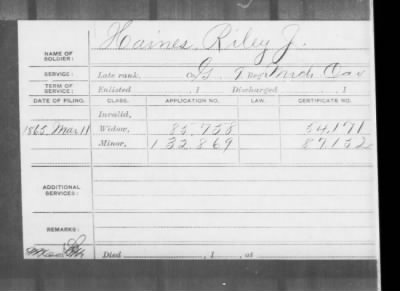 Haines, Riley J.
NAME OF SOLDIER:
SERVICE: Late rank, Co G, 7 Reg't Mich Cav
TERM OF SERVICE: Enlisted , 1 Discharged , 1
DATE OF FILING. CLASS. APPLICATION NO. LAW. CERTIFICATE NO.
Invalid,
1865, Mar 11 Widow, 85,758 54,171
Minor, 132,869 87,132
ADDITIONAL SERVICES:
REMARKS:
Died , 1 , at